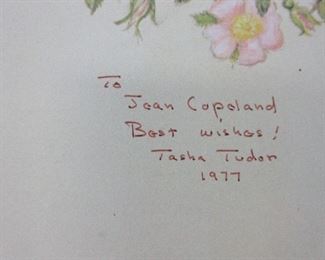 To
Jean Copeland
Best wishes!
Tasha Tudor
1977